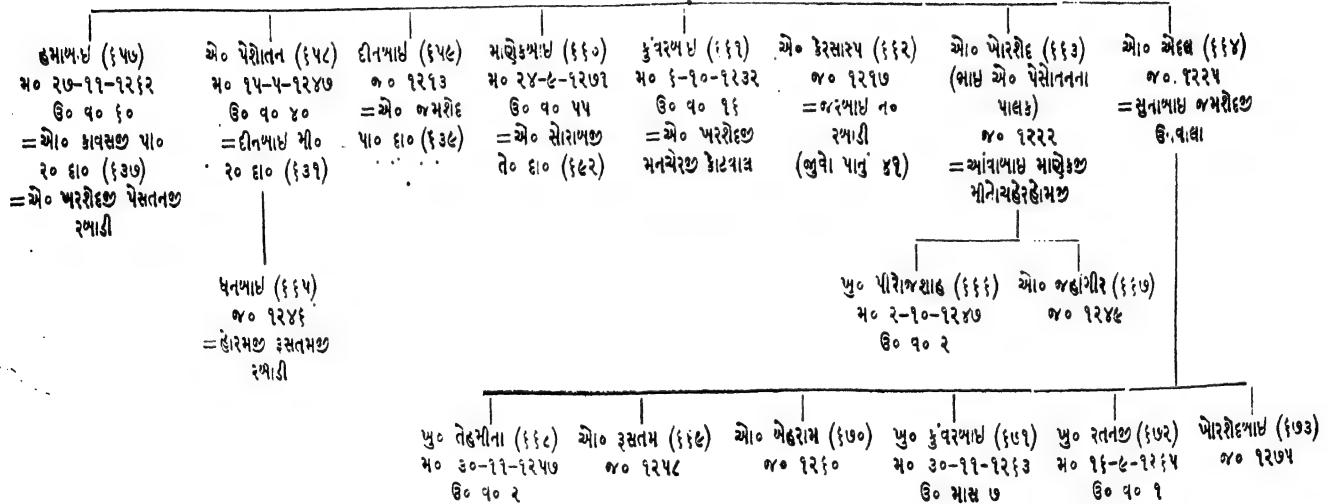 હમાબાઇ (૬૫૭)
મ૦ ૨૭-૧૧-૧૨૬૨
ઉ૦ વ૦ ૬૦
=એા૦ કાવસજી પા૦
ર૦ દા૦ (૬૩૭)
=એ૦ ખરશેદજી પેસતનજી
રબાડી
એ૦ પેશોતન (૬૫૮)
મ૦ ૧૫-૫-૧૨૪૭
ઉ૦ વ૦ ૪૦
=દીનબાઇ મી૦
ર૦ દા૦ (૬૩૧)
દીનબાઇ (૬૫૯)
જ૦ ૧૨૧૩
=એ૦ જમશેદ
પા૦ દા૦ (૬૩૯)
માણેકબાઇ (૬૬૦)
મ૦ ૨૪-૯-૧૨૭૧
ઉ૦ વ૦ ૫૫
=એ૦ સોરાબજી
તે૦ દા૦ (૬૯૨)
કુંવરબાઇ (૬૬૧)
મ૦ ૬-૧૦-૧૨૩૨
ઉ૦ વ૦ ૧૬
=એ૦ ખરશેદજી
મનચેરજી કોટવાલ
એ૦ કેરસાસ્પ (૬૬૨)
જ૦ ૧૨૧૭
=જરબાઇ ન૦
રબાડી
(જુવો પાનું ૪૧)
એા૦ ખોરશેદ (૬૬૩)
(ભાઇ એ૦ પેસોતનના
પાલક)
જ૦ ૧૨૨૨
=આંવાબાઇ માણેકજી
મીનોચહેરહોમજી
એા૦ એદલ (૬૬૪)
જ૦ ૧૨૨૫
=સુનાબાઇ જમશેદજી
ઉ.વાલા
ધનબાઇ (૬૬૫)
જ૦ ૧૨૪૬
=હોરમજી રૂસતમજી
રબાડી
ખુ૦ પીરોજશાહ (૬૬૬)
મ૦ ૨-૧૦-૧૨૪૭
ઉ૦ વ૦ ૨
એા૦ જહાંગીર (૬૬૭)
જ૦ ૧૨૪૯
ખુ૦ તેહમીના (૬૬૮)
મ૦ ૩૦-૧૧-૧૨૫૭
ઉ૦ વ૦ ૨
એા૦ રૂસતમ (૬૬૯)
જ૦ ૧૨૫૮
એા૦ બેહરામ (૬૭૦)
જ૦ ૧૨૬૦
ખુ૦ કુંવરબાઇ (૬૭૧)
મ૦ ૩૦-૧૧-૧૨૬૩
ઉ૦ માસ ૭
ખુ૦ રતનજી (૬૭૨)
મ૦ ૧૬-૯-૧૨૬૫
ઉ૦ વ૦ ૧
ખોરશેદબાઇ (૬૭૩)
જ૦ ૧૨૭૫